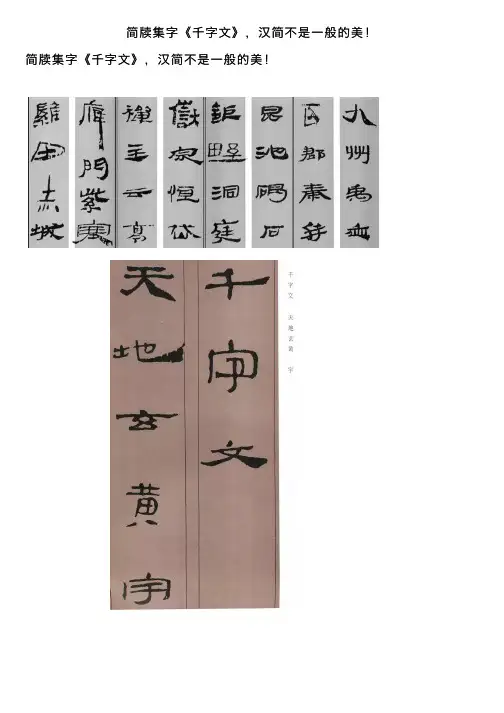 简牍集字《千字文》，汉简不是一般的美！
简牍集字《千字文》，汉简不是一般的美！
九州禹迹
百郡秦并
昆池碣石
鉅野洞庭
嶽宗恒岱
禪主云亭
雁門紫塞
雞田赤城
千字文
天地玄黄宇
千字文 天地玄黄 宇